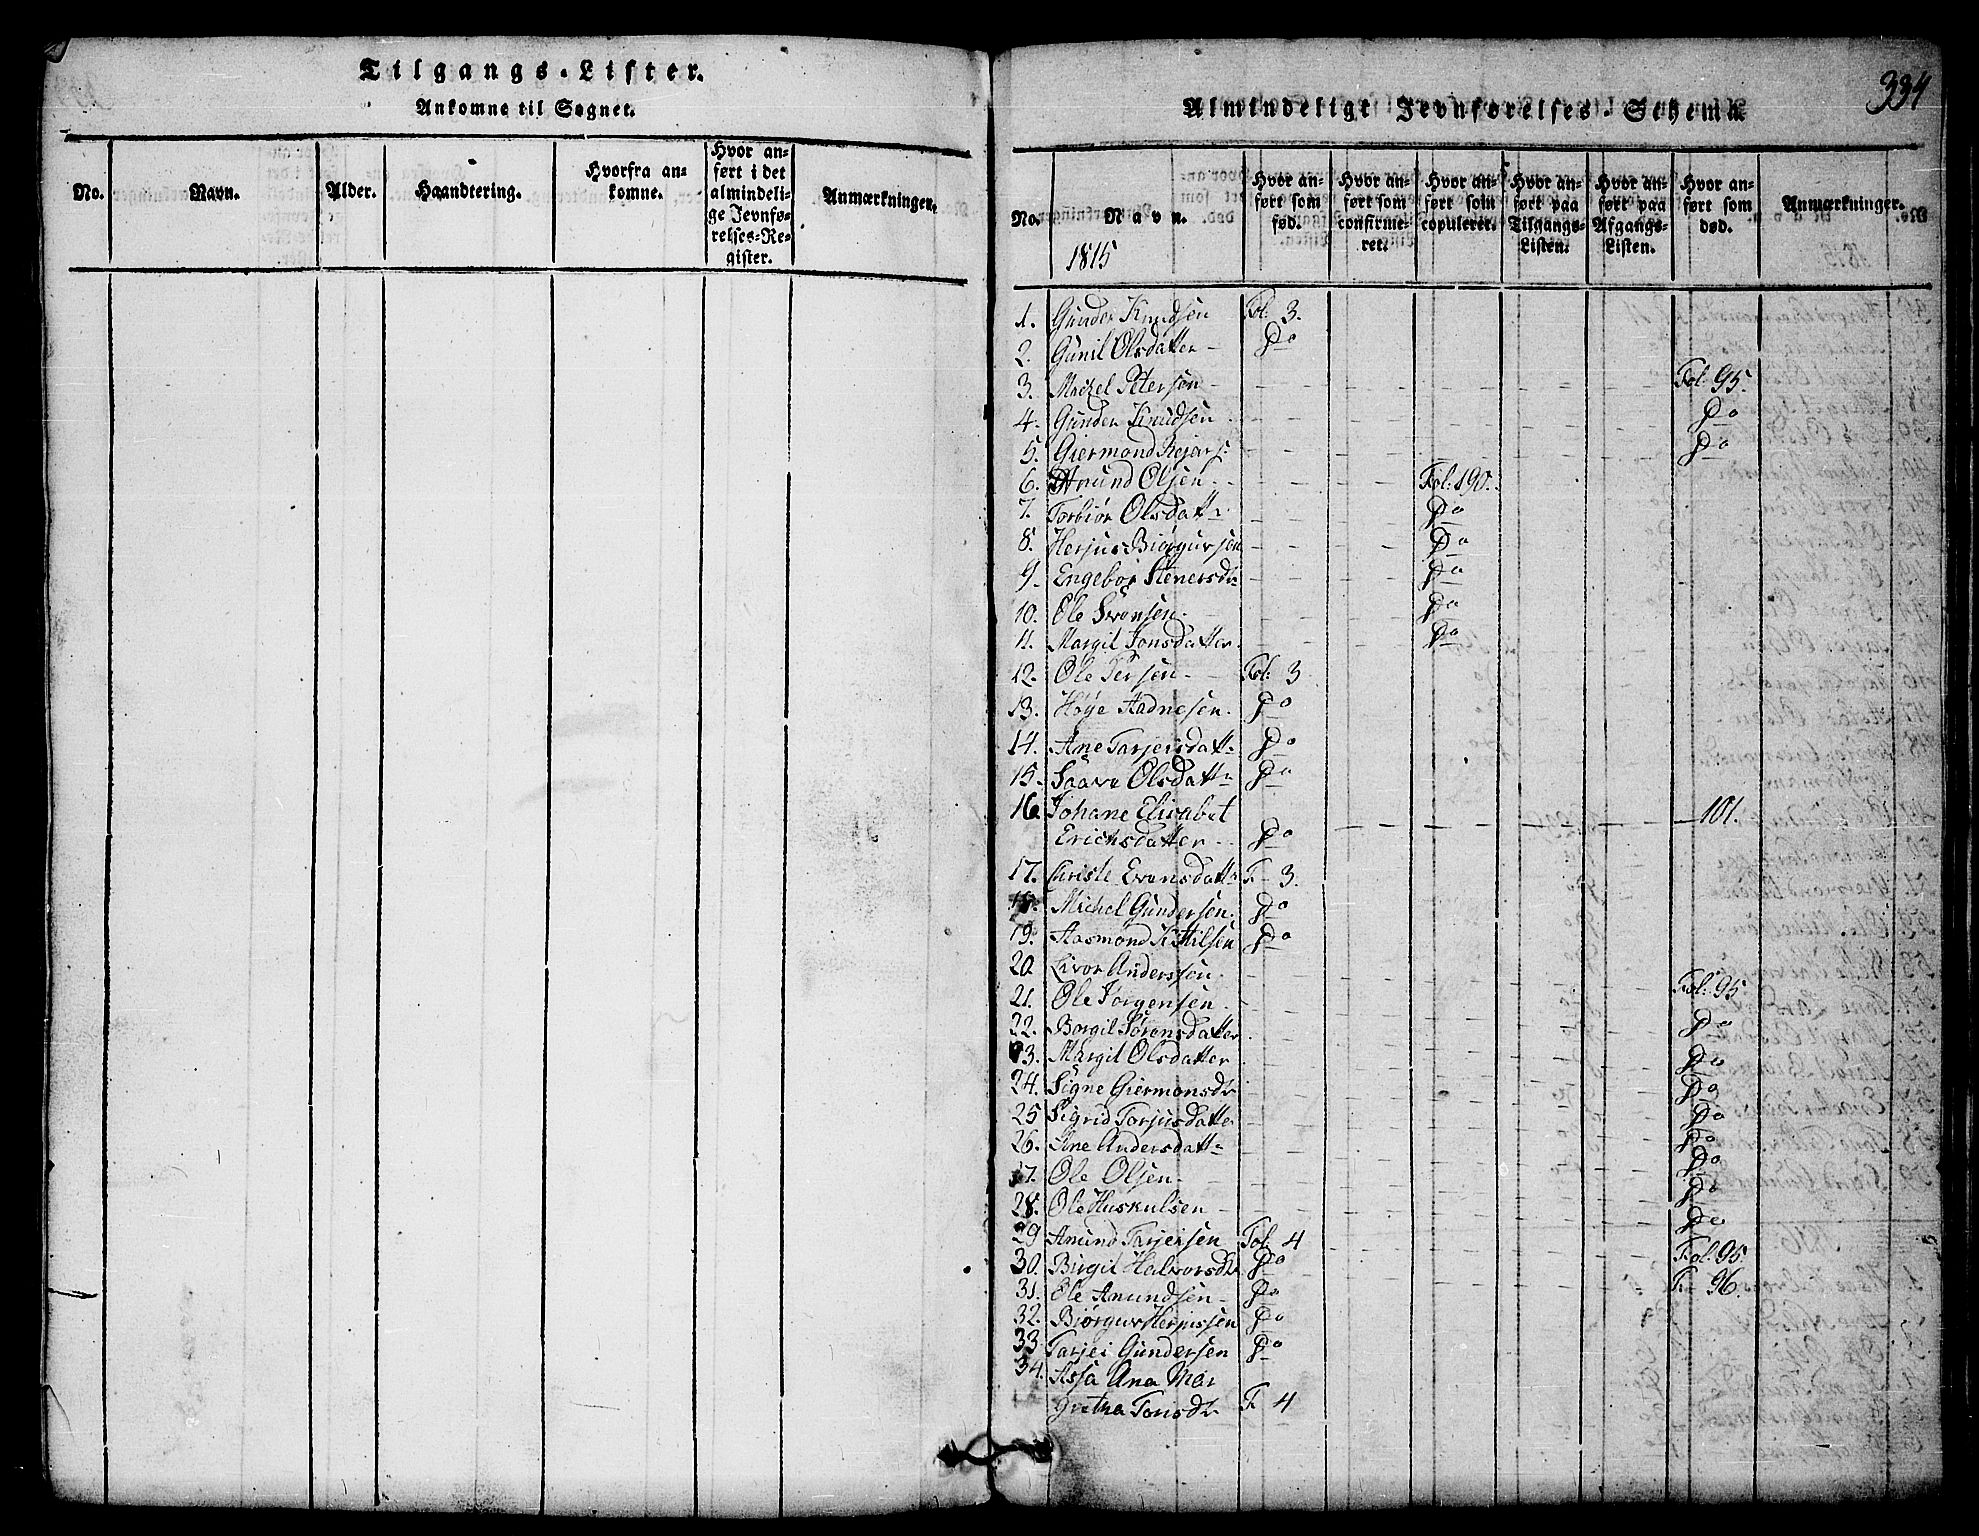 Tilgangs-Lister.
Ankomne til Sognet.
No. Navn. Alder. Haandtering. Hvorfra ankomne. Hvor anført i det almindelige Jevnførelses-Register. Anmærkninger.
334
Almindeligt Jevnførelses-Schema
No. Navn. Hvor anført som fød. Hvor anført som confirmeret. Hvor anført som copuleret. Hvor anført paa Tilgangs-Listen. Hvor anført paa Afgangs-Listen. Hvor anført som død. Anmærkninger.
1815
1. Gunder Knudsen Fol: 3.
2. Gunil Olsdatter - Do
3. Mickel Petersen - Fol: 95.
4. Gunder Knudsen Do
5. Giermond Do
6. Anund Olsen Fol: 190.
7. Torbiør Olsdatt Do
8. Herjus Biørgursen Do
9. Engebor Stenersdr Do
10. Ole Svensen Do
11. Margit Jonsdatter Do
12. Ole Persen - Fol: 3
13. Høye Aadnesen. Do
14. Ane Tarjersdatt Do
15. Saave Olsdatt Do
16. Johane Elisabet
Erichsdatter Do 101.
17. Christi Evensdatt F 3.
18. Michel Gundersen. Do
19. Aasmond Kittilsen Do
20 Livor Anderssen
21. Ole Jørgensen Fol: 95
22. Borgil Sørensdatter Do
23. Margit Olsdatter Do
24. Signe Giermonsdr Do
25 Sigrid Torjusdatter Do
26. Ane Andersdatt Do
27. Ole Olsen Do
28. Ole Huskulsen Do
29 Anund Tarjersen Fol: 4 Do
30. Birgit Halvorsdr Do Fol: 95.
31. Ole Anundsen Do F 96.
32. Biørgur Herjussen Do
33. Tarjei Gundersen Do
34. Asja Ana Mar
gretha Tonsdr F 4